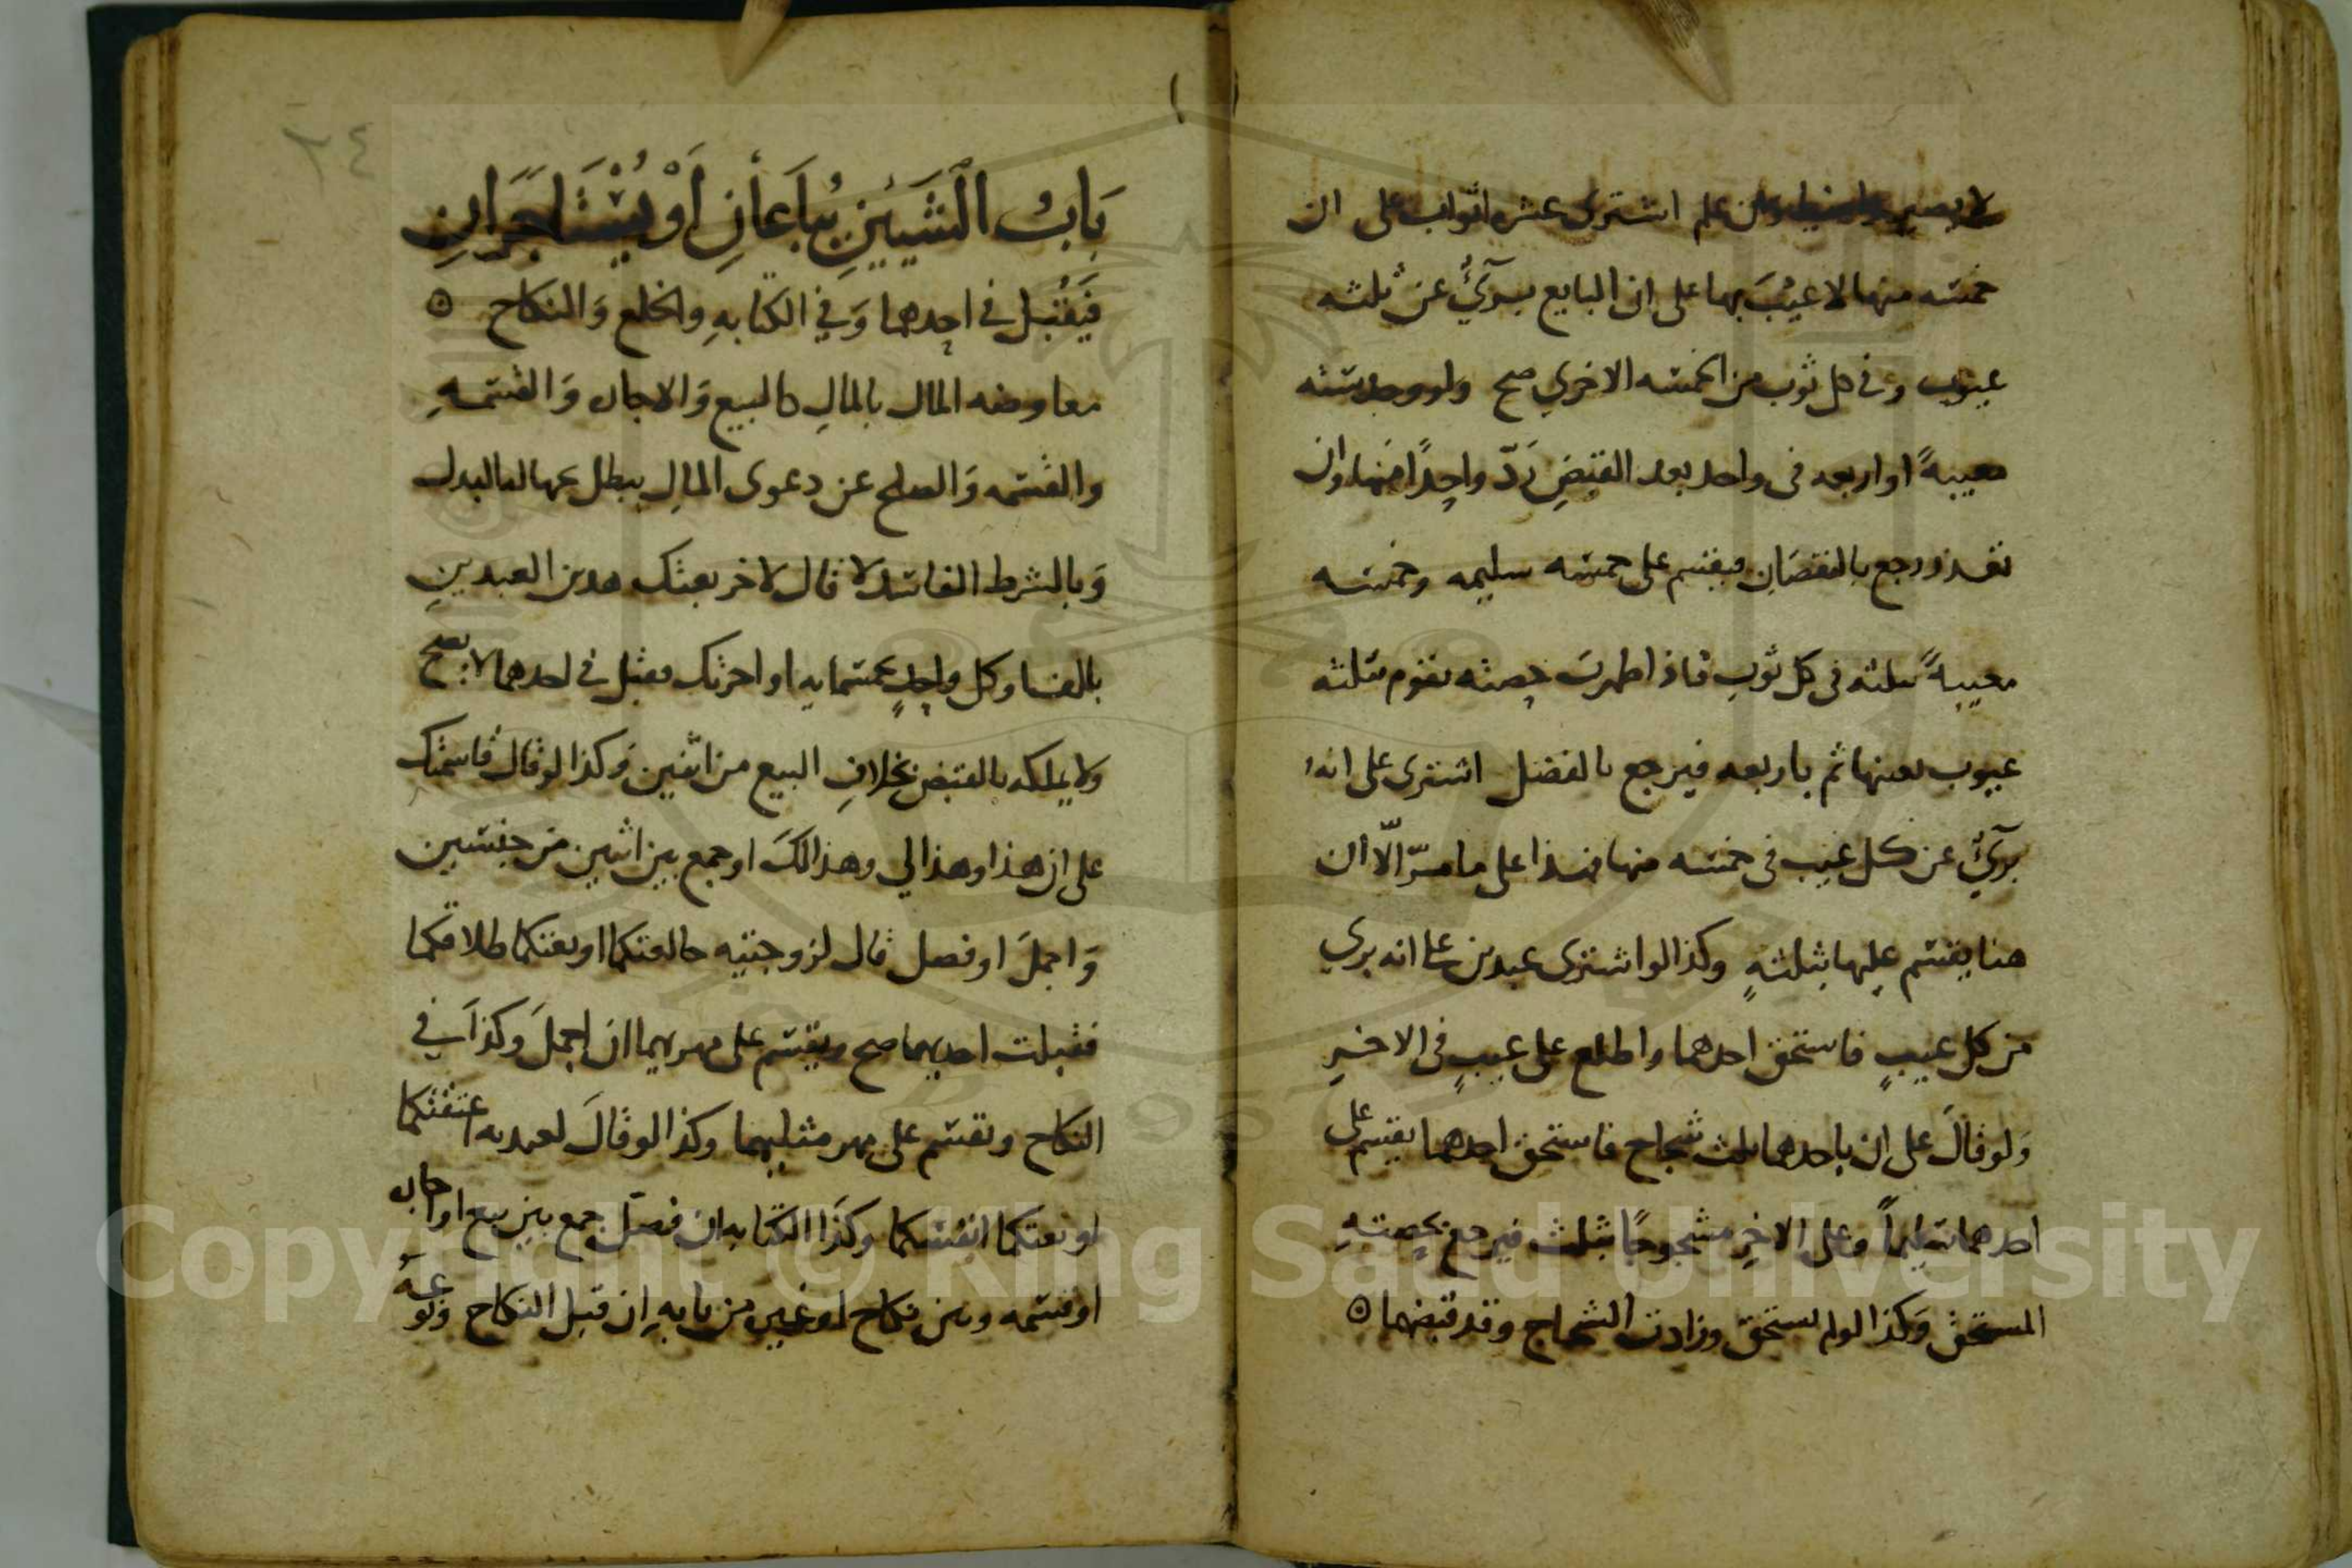 علم اشترى عشره اثواب على ان
خمسه منها لا عيب بها على ان البايع بريٌ عن ثلثه
عيوب وفي كل ثوب من الخمسه الاخري صح ولو وجد سته
معيبةً او اربعه فى واحد بعد القبضِ رَدّ واحِداً منها وان
تعذر رجع بالنقصَان فيقسم على خمسه سليمه وخمسه
معيبةً بثلثه فى كل ثوب فاذا ظهرت حصته يقوم بثلثه
عيوب بعينها ثم باربعه فيرجع بالفضل اشترى على انه
بريٌ عن كل عيب فى خمسه منها فهذا على ما مرّ الّا ان
هنا يقسم عليها بثلثهٍ وكذا لو اشترى عبدين على انه بري
من كل عيبٍ فاستحق احدهما واطلع على عيبٍ فى الاخرِ
وَلو قالَ على ان باحدهما ثلث شجاج فاستحق احدهما يقسم على
احدهما سليماً وعلى الاخرِ مشجوجًا بثلث فيرجع بحصتهِ
المستحق وَكذا لو لم يستحق وزادت الشجاج وقد قبضهما
٢٤
بَابُ الشَيئينِ يُبَاعَانِ اَوْ يُسْتَاجَرَانِ
فَيَقْبَل في احدهما وَفي الكتابهِ والخلع وَالنكاح
معاوضه المال بالمالِ كالبيع وَالاجاره وَالقسمهِ
والقسمه وَالصلح عن دعوى المالِ يبطل بالبدل
وَبالشرط الفاسد لا قال لاخر بعتك هذين العبدينِ
بالف او كل واحدٍ بخمسمايه او اجرتك فقبل في احدهما لا يصح
ولا يملكه بالقبض بخلافِ البيع من اثنين وَكذا لو قال قاسمتك
على ان هذا وهذا لي وهذا لكَ او جمع بين اثنين من جنسين
وَاجملَ او فصل قال لزوجتيه خالعتكما او بعتكما طلاقكما
فقبلت احديهما صح ويقسم على مهريهما ان اجملَ وَكذا في
النكاح ويقسم على مهر مثليهما وكذا لو قالَ لعبديه اعتقتكما
او بعتكما انفسكما وكذَا الكتابه ان فصل جمع بين بيع او اجاره
او قسمه وبين نكاح او غيره من بابهِ ان قبل النكاح